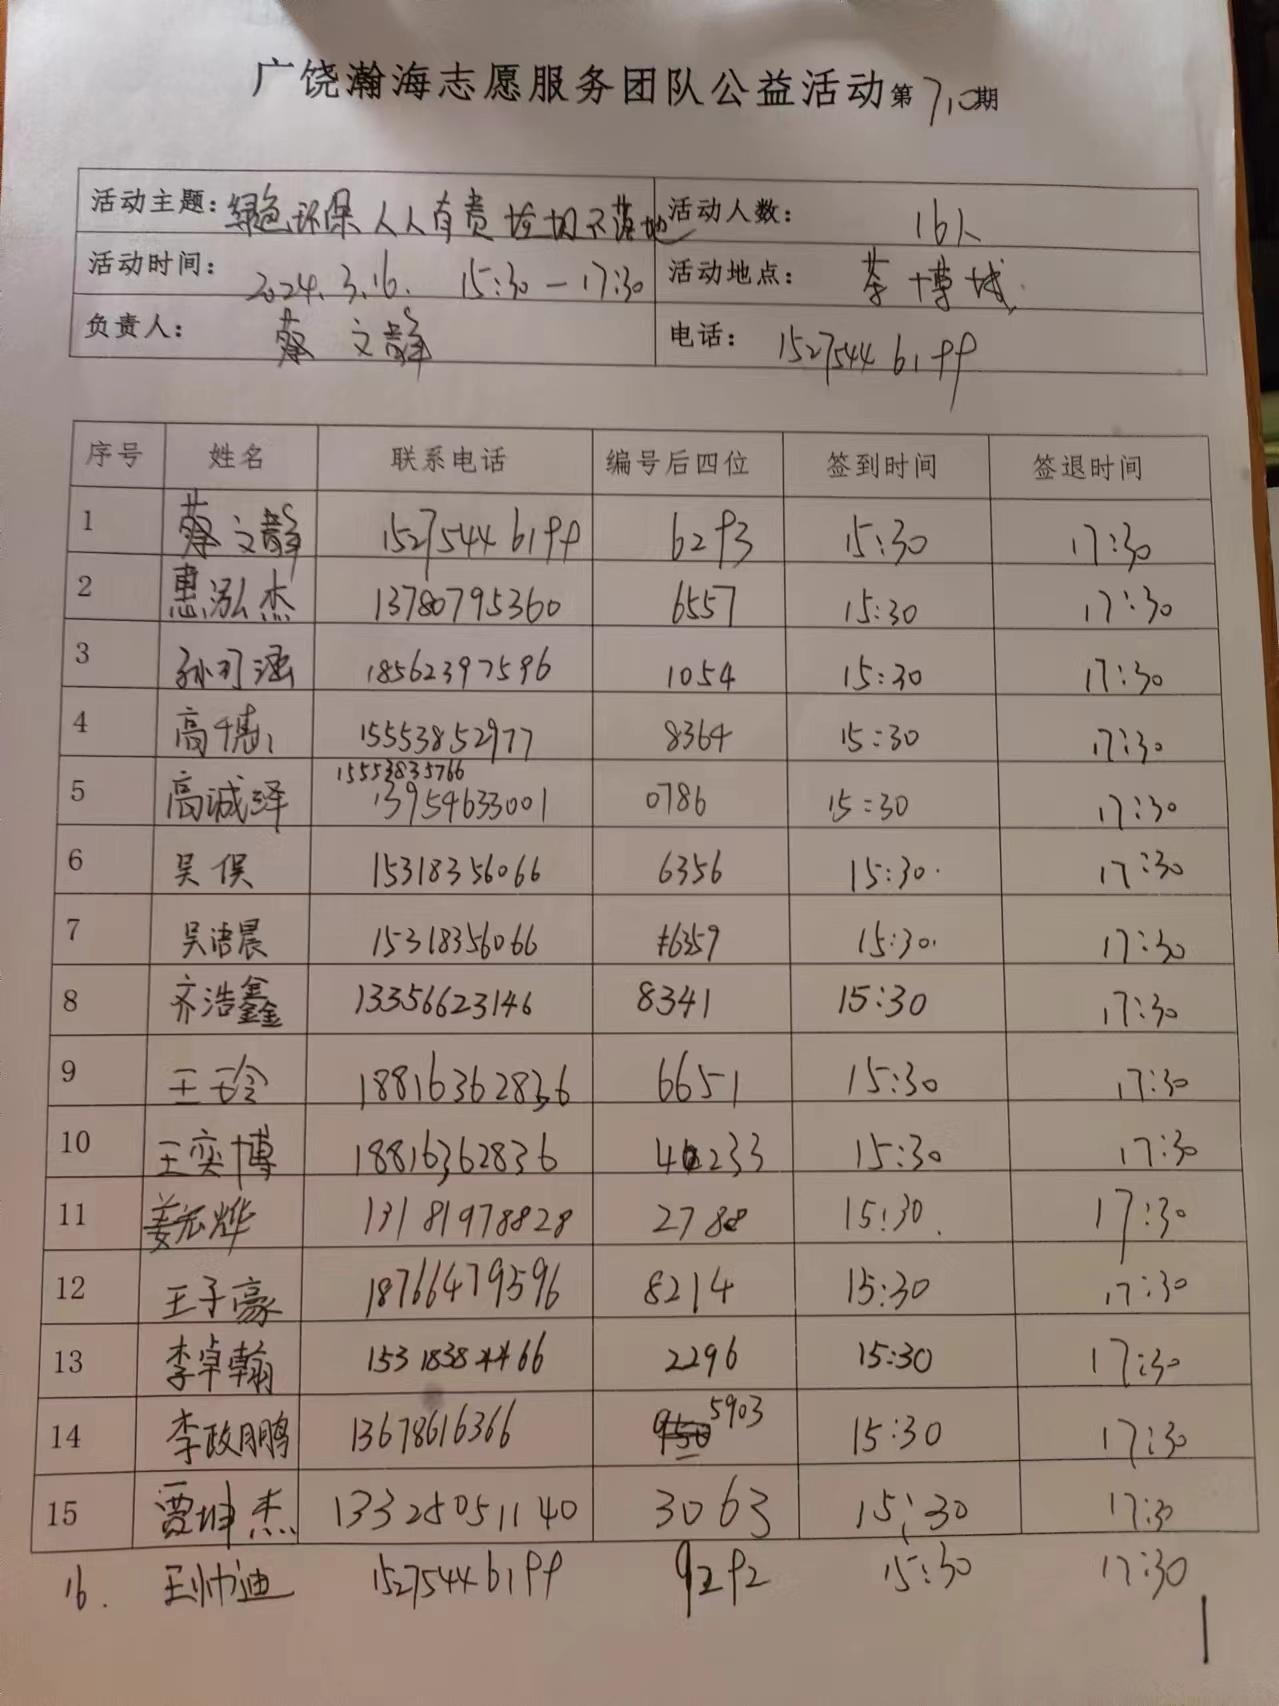 广饶瀚海志愿服务团队公益活动第710期
活动主题：绿色环保人人有责垃圾不落地 活动人数： 16人
活动时间： 2024.3.16. 15:30—17:30 活动地点： 茶博城
负责人： 蔡文静 电话： 15275446199
序号 姓名 联系电话 编号后四位 签到时间 签退时间
1 蔡文静 15275446199 6293 15:30 17:30
2 惠泓杰 13780795360 6557 15:30 17:30
3 孙可涵 18562397596 1054 15:30 17:30
4 高 15553852977 8364 15:30 17:30
15553835766
5 高诚泽 13954633001 0786 15:30 17:30
6 吴俣 15318356066 6356 15:30 17:30
7 吴浯晨 15318356066 6359 15:30 17:30
8 齐浩鑫 13356623146 8341 15:30 17:30
9 王玲 18816362836 6651 15:30 17:30
10 王奕博 18816362836 4233 15:30 17:30
11 姜宏烨 13181978828 2788 15:30 17:30
12 王子豪 18766479596 8214 15:30 17:30
13 李卓翰 15318384466 2296 15:30 17:30
14 李政鹏 13678616366 5903 15:30 17:30
15 贾坤杰 13325051140 3063 15:30 17:30
16. 王帅迪 15275446199 9292 15:30 17:30
1